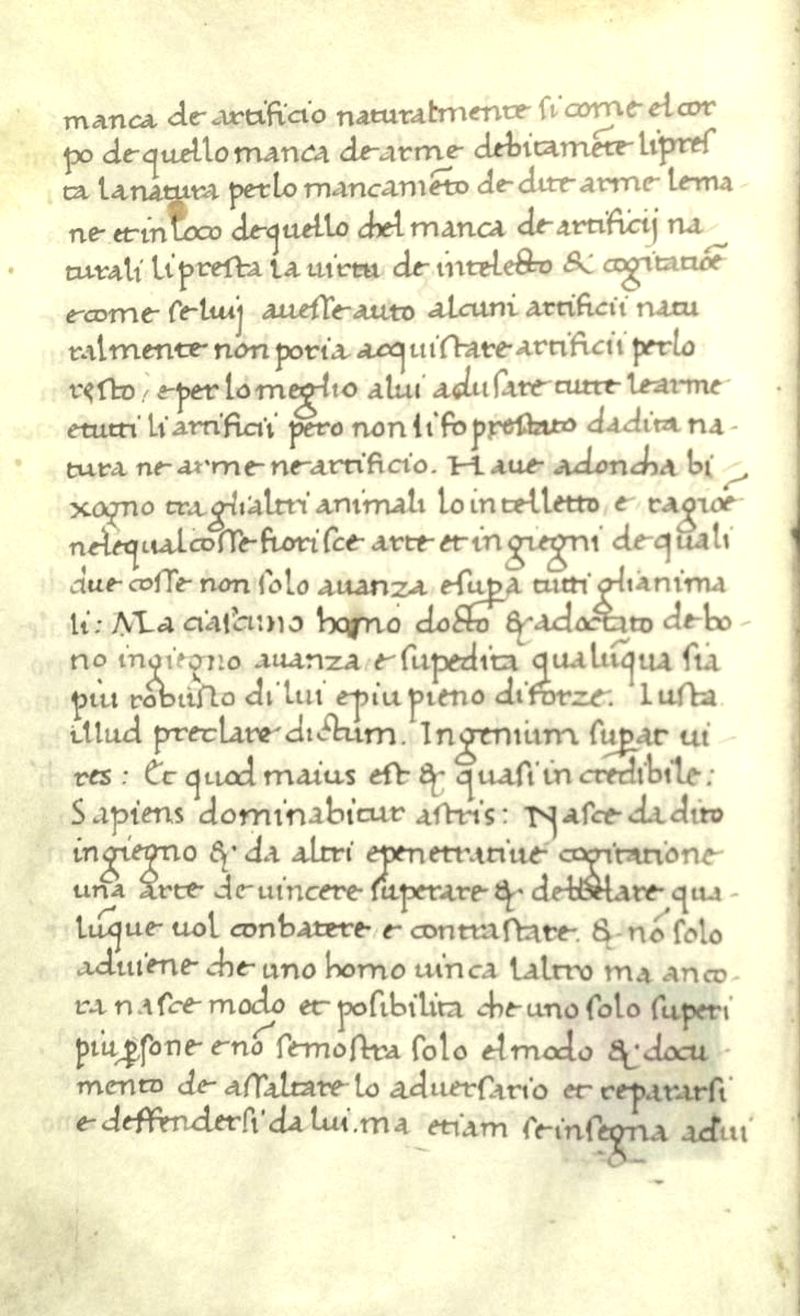 manca de artificio naturalmente si come el cor
po de quello manca de arme debitamẽte li pres
ta la natura per lo mancamẽto de dite arme le ma
ne et in loco de quello chel manca de artificij na
turali li presta la uirtu de intelecto & cogitatiõe
e come se luij auesse auto alcuni artificii natu
ralmente non poria acquistare artificii per lo
resto / e per lo meglio a lui adusare tutte le arme
e tutti li artificii pero non li fo prestato da dita na-
tura ne arme ne artificio. Haue adoncha bi
xogno tra gli altri animali lo intelletto e ragiõe
ne le qual cosse fiorisce arte et ingiegni de quali
due cosse non solo auanza e supa tutti gli anima
li: Ma ciaſcuno homo docto & adoctato de bo-
no ingiegno auanza e supedita qualũqua sia
piu robusto di lui e piu pieno di forze. Iusta
illud preclare dictum. Ingenium supar ui
res: Et quod maius est & quasi in credibile:
Sapiens dominabitur astris: Nasce da dito
ingiegno & da altri e penetratiue cogitatione
una arte de uincere superare & debelare qua-
lũque uol conbatere e contrastare. & nõ solo
aduiene che uno homo uinca laltro ma anco-
ra nasce modo et posibilita che uno solo superi
piu ꝑsone e nõ se mostra solo el modo & docu-
mento de assaltare lo aduersario et repararsi
e deffendersi da lui. ma etiam se insegna adui